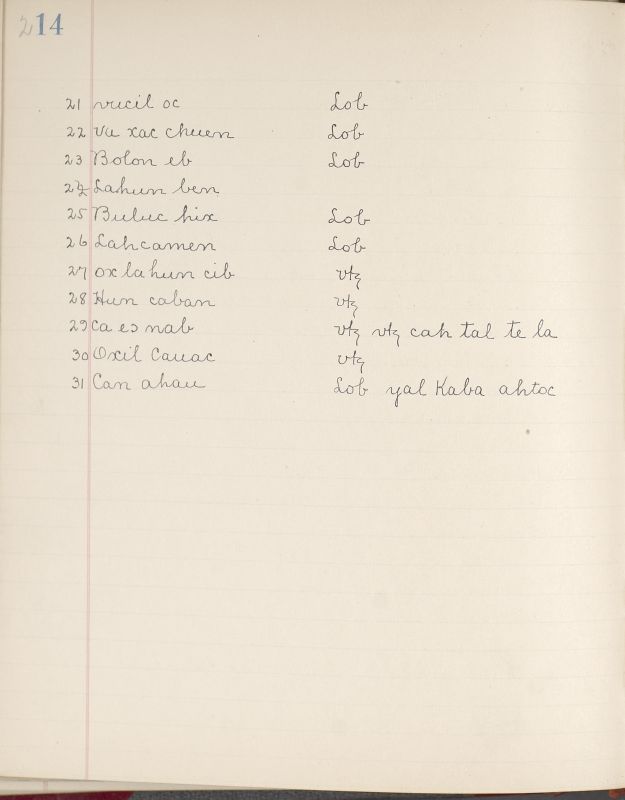 214
21 vucil oc Lob
22 Va xac chuen Lob
23 Bolon eb Lob
24 Lahun ben
25 Buluc hix Lob
26 Lahcamen Lob
27 oxlahun cib vtz
28 Hun caban vtz
29 Ca es nab vtz vtz cah tal te la
30 Oxil Cauac vtz
31 Can ahau Lob yal Kaba ahtoc